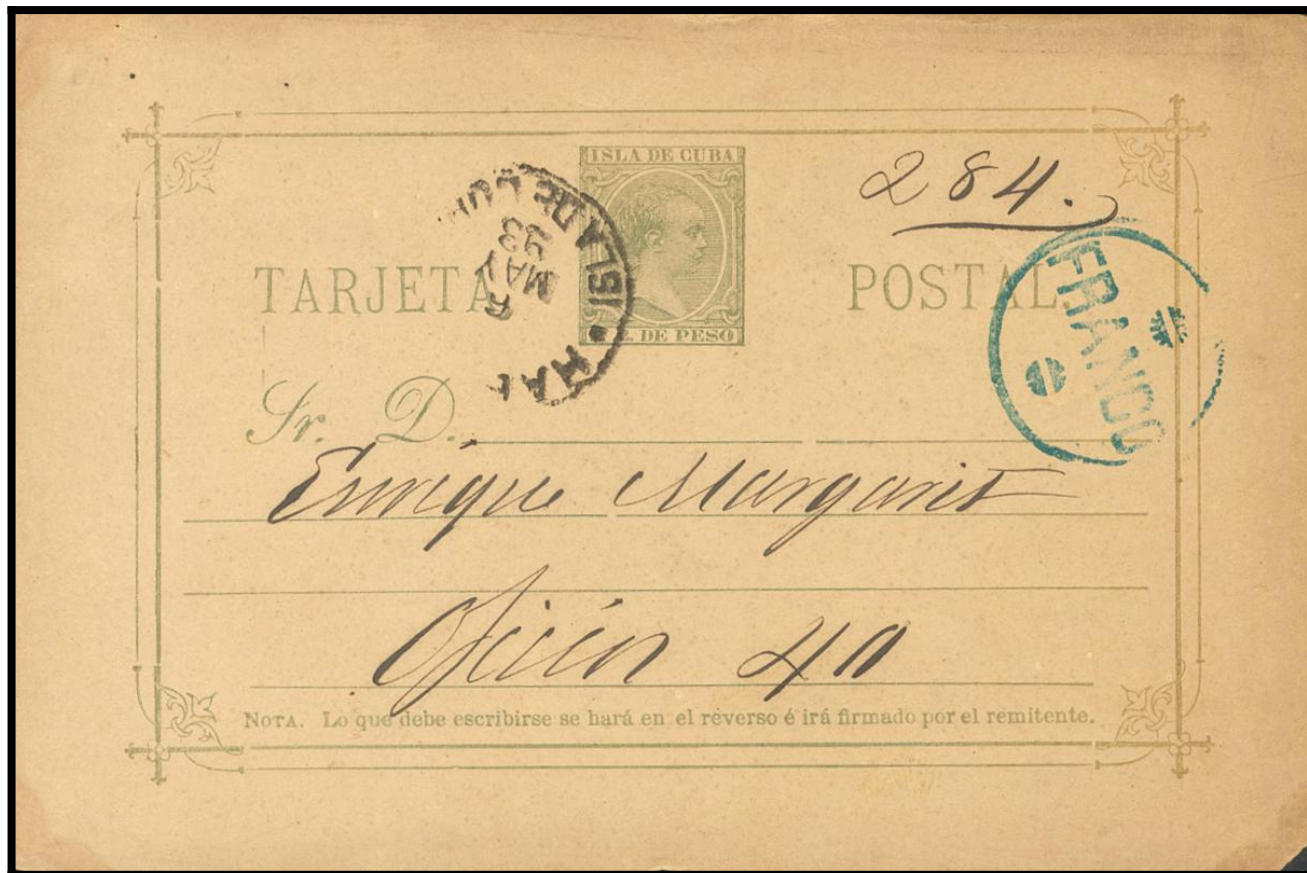 ISLA DE CUBA
284.
TARJETA POSTAL
DE PESO
ISLA DE CUBA
MAY
93
FRANCO
Sr. D.
Enrique Margarit
40
NOTA. Lo que debe escribirse se hará en el reverso é irá firmado por el remitente.